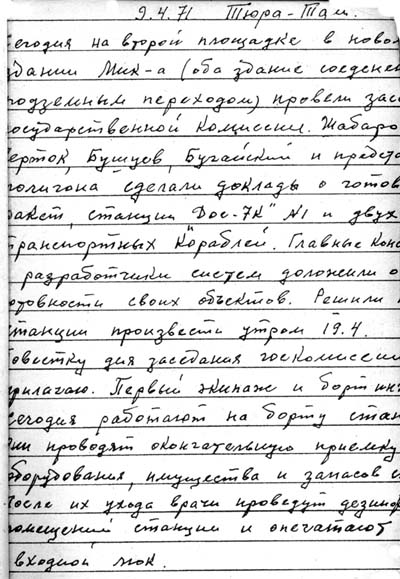 9.4.71 Тюра-Там.
сегодня на второй площадке в новом
здании Мик-а (оба здание соеденен
подземным переходом) провели засе
государственной комиссии. Шабаро
Черток, Бушуев, Бугайский и предста
полигона сделали доклады о готов
ракет, станции "Дос-7К" №1 и двух
транспортных кораблей. Главные конс
и разработчики систем доложили о
готовности своих объектов. Решили п
станции произвести утром 19.4.
Повестку дня заседания госкомиссии
прилагаю. Первый экипаж и бортинж
сегодня работают на борту стан
Они проводят окончательную приемку
оборудования, имущества и запасов с
После их ухода врачи проведут дезинф
помещений станции и опечатают
входной люк.